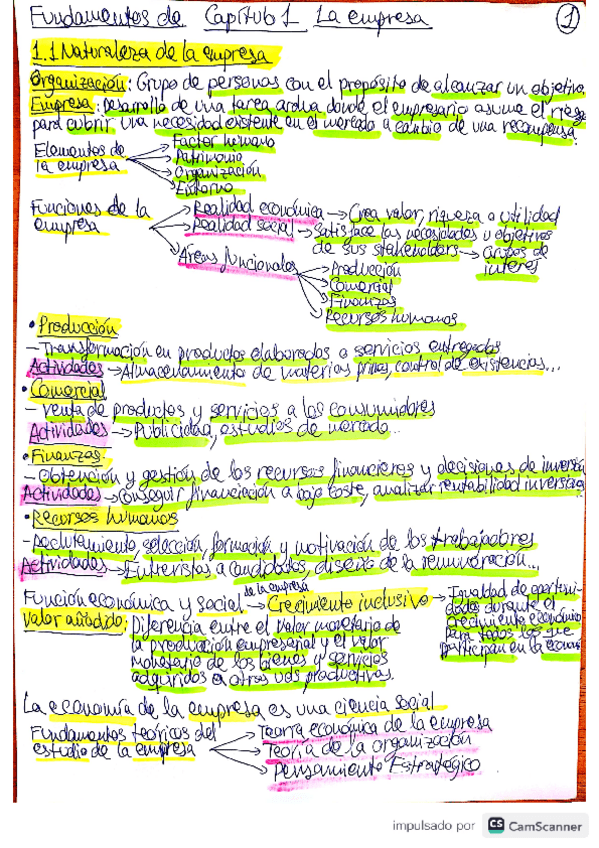 Fundamentos de Capítulo 1 La empresa 1
1.1 Naturaleza de la empresa
Organización: Grupo de personas con el propósito de alcanzar un objetivo
Empresa: Desarrollo de una tarea ardua donde el empresario asume el riesgo
para cubrir una necesidad existente en el mercado a cambio de una recompensa.
Elementos de la empresa
Factor humano
Patrimonio
Organización
Entorno
Funciones de la empresa
Realidad económica → Crea valor, riqueza o utilidad
Realidad social → Satisface las necesidades u objetivos
de sus stakeholders → Grupos de interés
Áreas funcionales
Producción
Comercial
Finanzas
Recursos humanos
• Producción
- Transformación en productos elaborados o servicios entregados
Actividades → Almacenamiento de materias primas, control de existencias...
• Comercial
- Venta de productos y servicios a los consumidores
Actividades → Publicidad, estudios de mercado...
• Finanzas:
- Obtención y gestión de los recursos financieros y decisiones de inversión
Actividades → Conseguir financiación a bajo coste, analizar rentabilidad inversión
• Recursos humanos
- Reclutamiento, selección, formación y motivación de los trabajadores
Actividades → Entrevistas a candidatos, diseño de la remuneración...
Función económica y social de la empresa → Crecimiento inclusivo → Igualdad de oportuni-
dades durante el
crecimiento económico
para todos los que
participan en la economía
Valor añadido: Diferencia entre el valor monetario de
la producción empresarial y el valor
monetario de los bienes y servicios
adquiridos a otras uds productivas.
La economía de la empresa es una ciencia social
Fundamentos teóricos del
estudio de la empresa
Teoría económica de la empresa
Teoría de la organización
Pensamiento Estratégico
impulsado por CS CamScanner